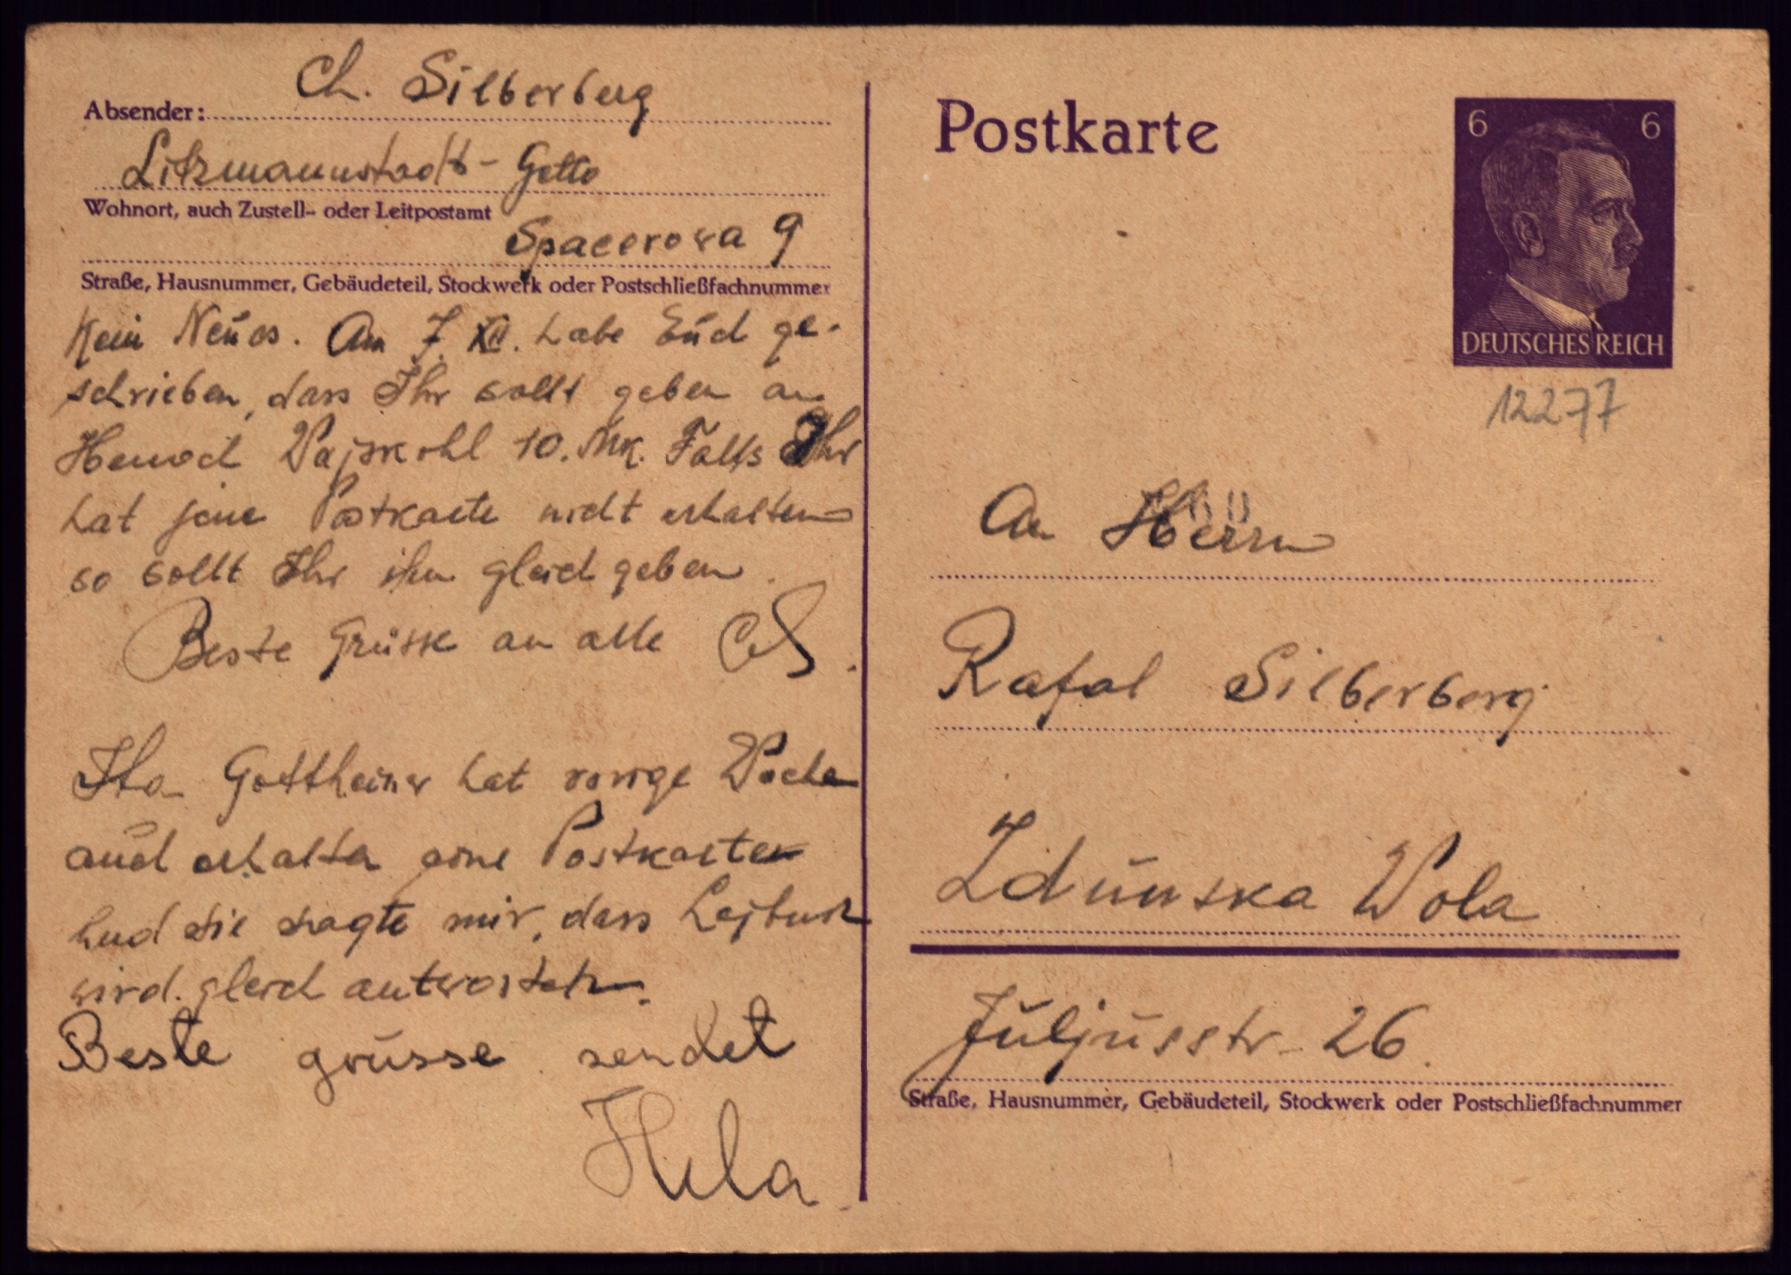 Absender: Ch. Silberberg
Litzmannstadt - Getto
Wohnort, auch Zustell- oder Leitpostamt
Spacerowa 9
Straße, Hausnummer, Gebäudeteil, Stockwerk oder Postschließfachnummer
Kein Neues. Am 7. XII. habe Euch ge-
schrieben, dass Ihr sollt geben an
Henoch Wajskohl 10. Mk. Falls Ihr
hat jene Postkarte nicht erhalten
so sollt Ihr ihm gleich geben.
Beste Grüsse an alle ChS.
Ita Gottheiner hat vorige Woche
auch erhalten eine Postkarte
und sie sagte mir, dass Lejbusch
wird gleich antworten.
Beste grüsse sendet
Hela.
Postkarte
6 6
DEUTSCHES REICH
12277
An Herrn
Rafal Silberberg
Zdunska Wola
Juljusstr. 26.
Straße, Hausnummer, Gebäudeteil, Stockwerk oder Postschließfachnummer